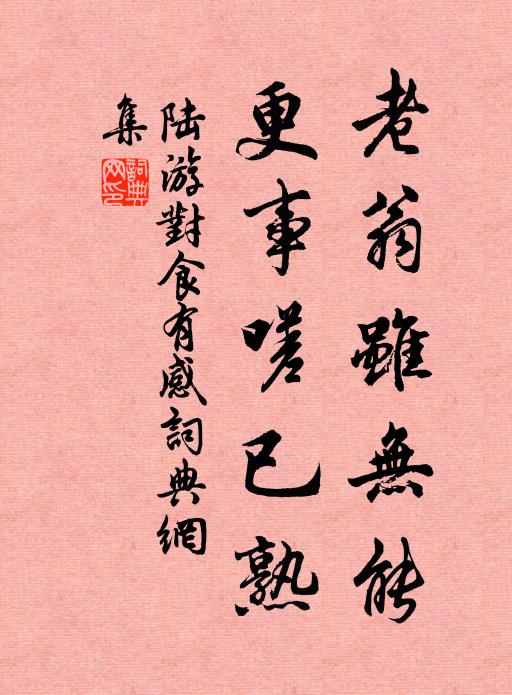 老翁雖無能
更事嗟已熟
陆游對食有感詞典網
集
詞典網印